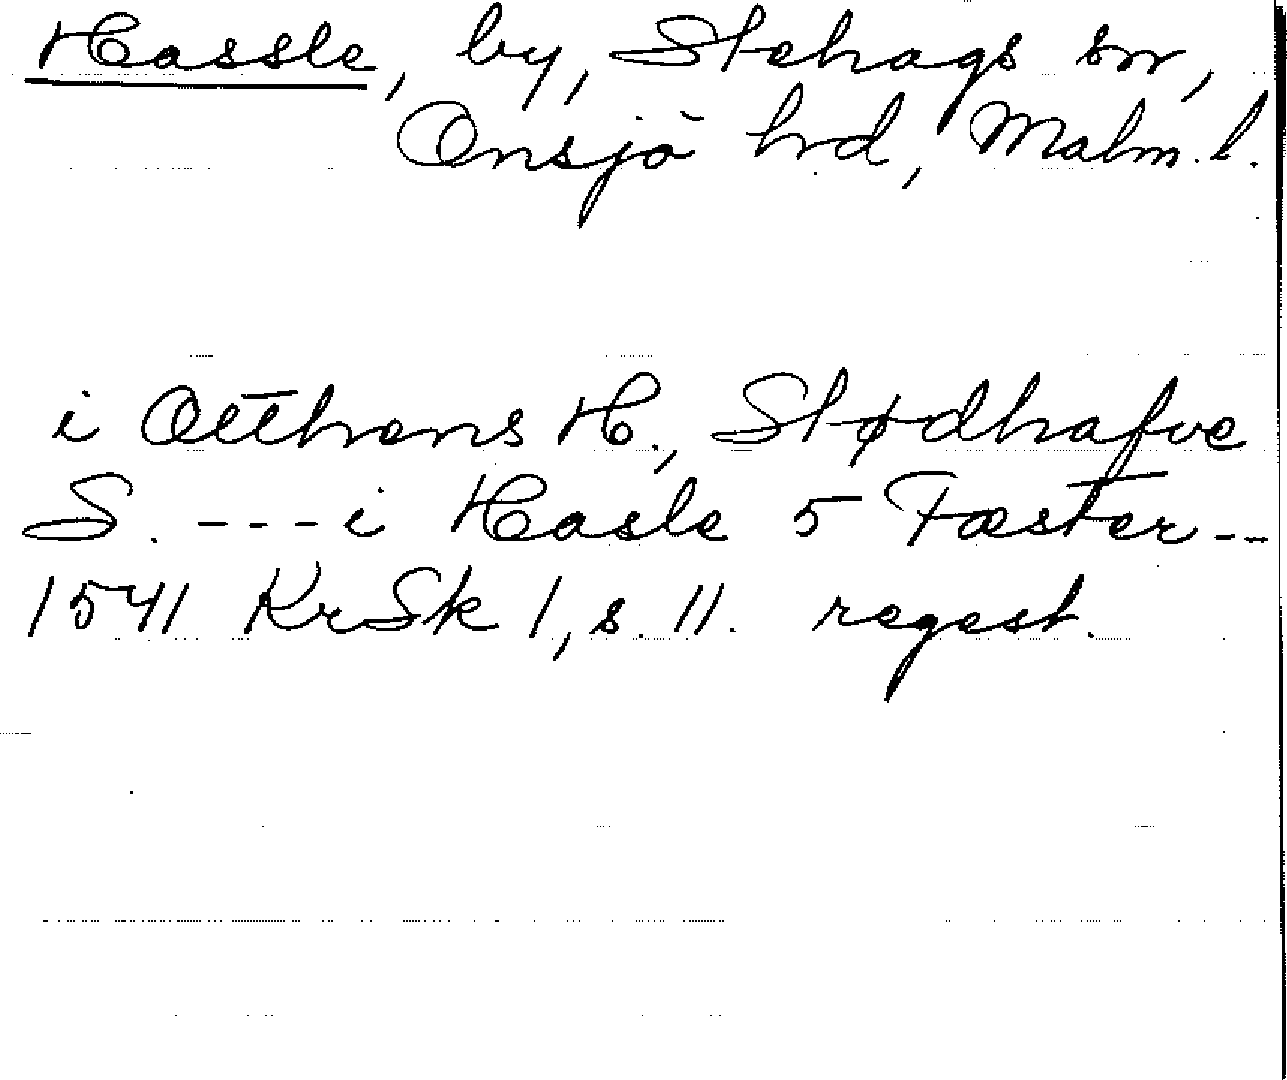 Hassle, by, Stehags sn,
Onsjö hrd, Malm. l.
i Otthens H., Stødhafve
S. --- i Hasle 5 Fæster --
1541 KrSk 1, s. 11. regest.